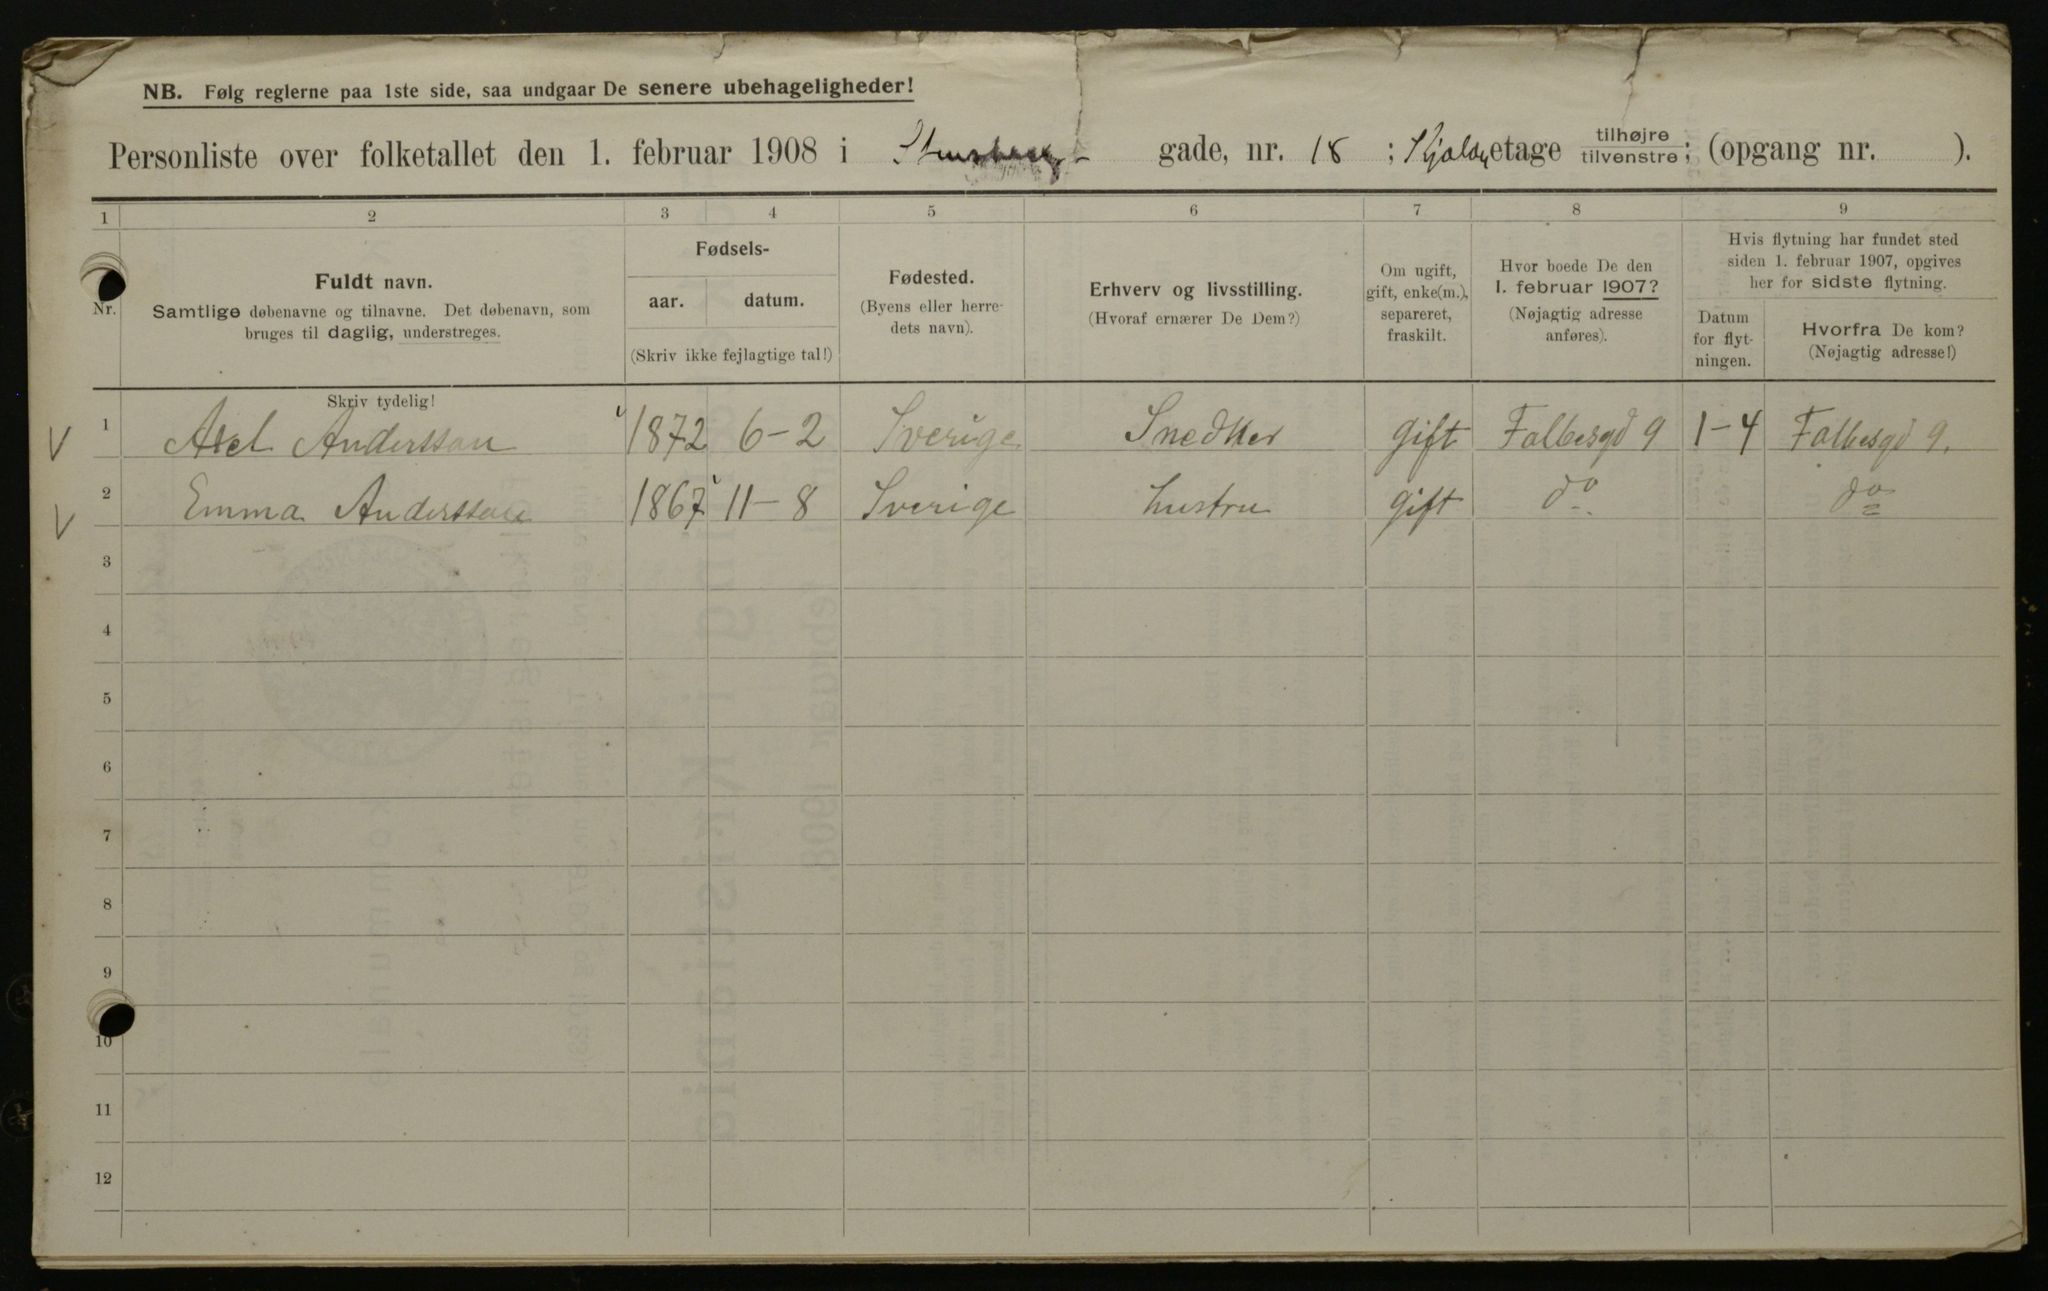 NB. Følg reglerne paa 1ste side, saa undgaar De senere ubehageligheder!
Personliste over folketallet den 1. februar 1908 i Stensberg- gade, nr. 18 ; etage tilhøjre tilvenstre; (opgang nr. ).
1 2 3 4 5 6 7 8 9
Nr.
Fuldt navn.
Samtlige døbenavne og tilnavne. Det døbenavn, som
bruges til daglig, understreges.
Fødsels-
aar. datum.
(Skriv ikke fejlagtige tal!)
Fødested.
(Byens eller herre-
dets navn).
Erhverv og livsstilling.
(Hvoraf ernærer De Dem?)
Om ugift,
gift, enke(m.),
separeret,
fraskilt.
Hvor boede De den
1. februar 1907?
(Nøjagtig adresse
anføres).
Hvis flytning har fundet sted
siden 1. februar 1907, opgives
her for sidste flytning.
Datum
for flyt-
ningen.
Hvorfra De kom?
(Nøjagtig adresse!)
Skriv tydelig!
1 Axel Andersson 1872 6-2 Sverige Snedker gift Falbesgd 9 1-4 Falbesgd 9.
2 Emma Andersson 1867 11-8 Sverige hustru gift do do
3
4
5
6
7
8
9
10
11
12